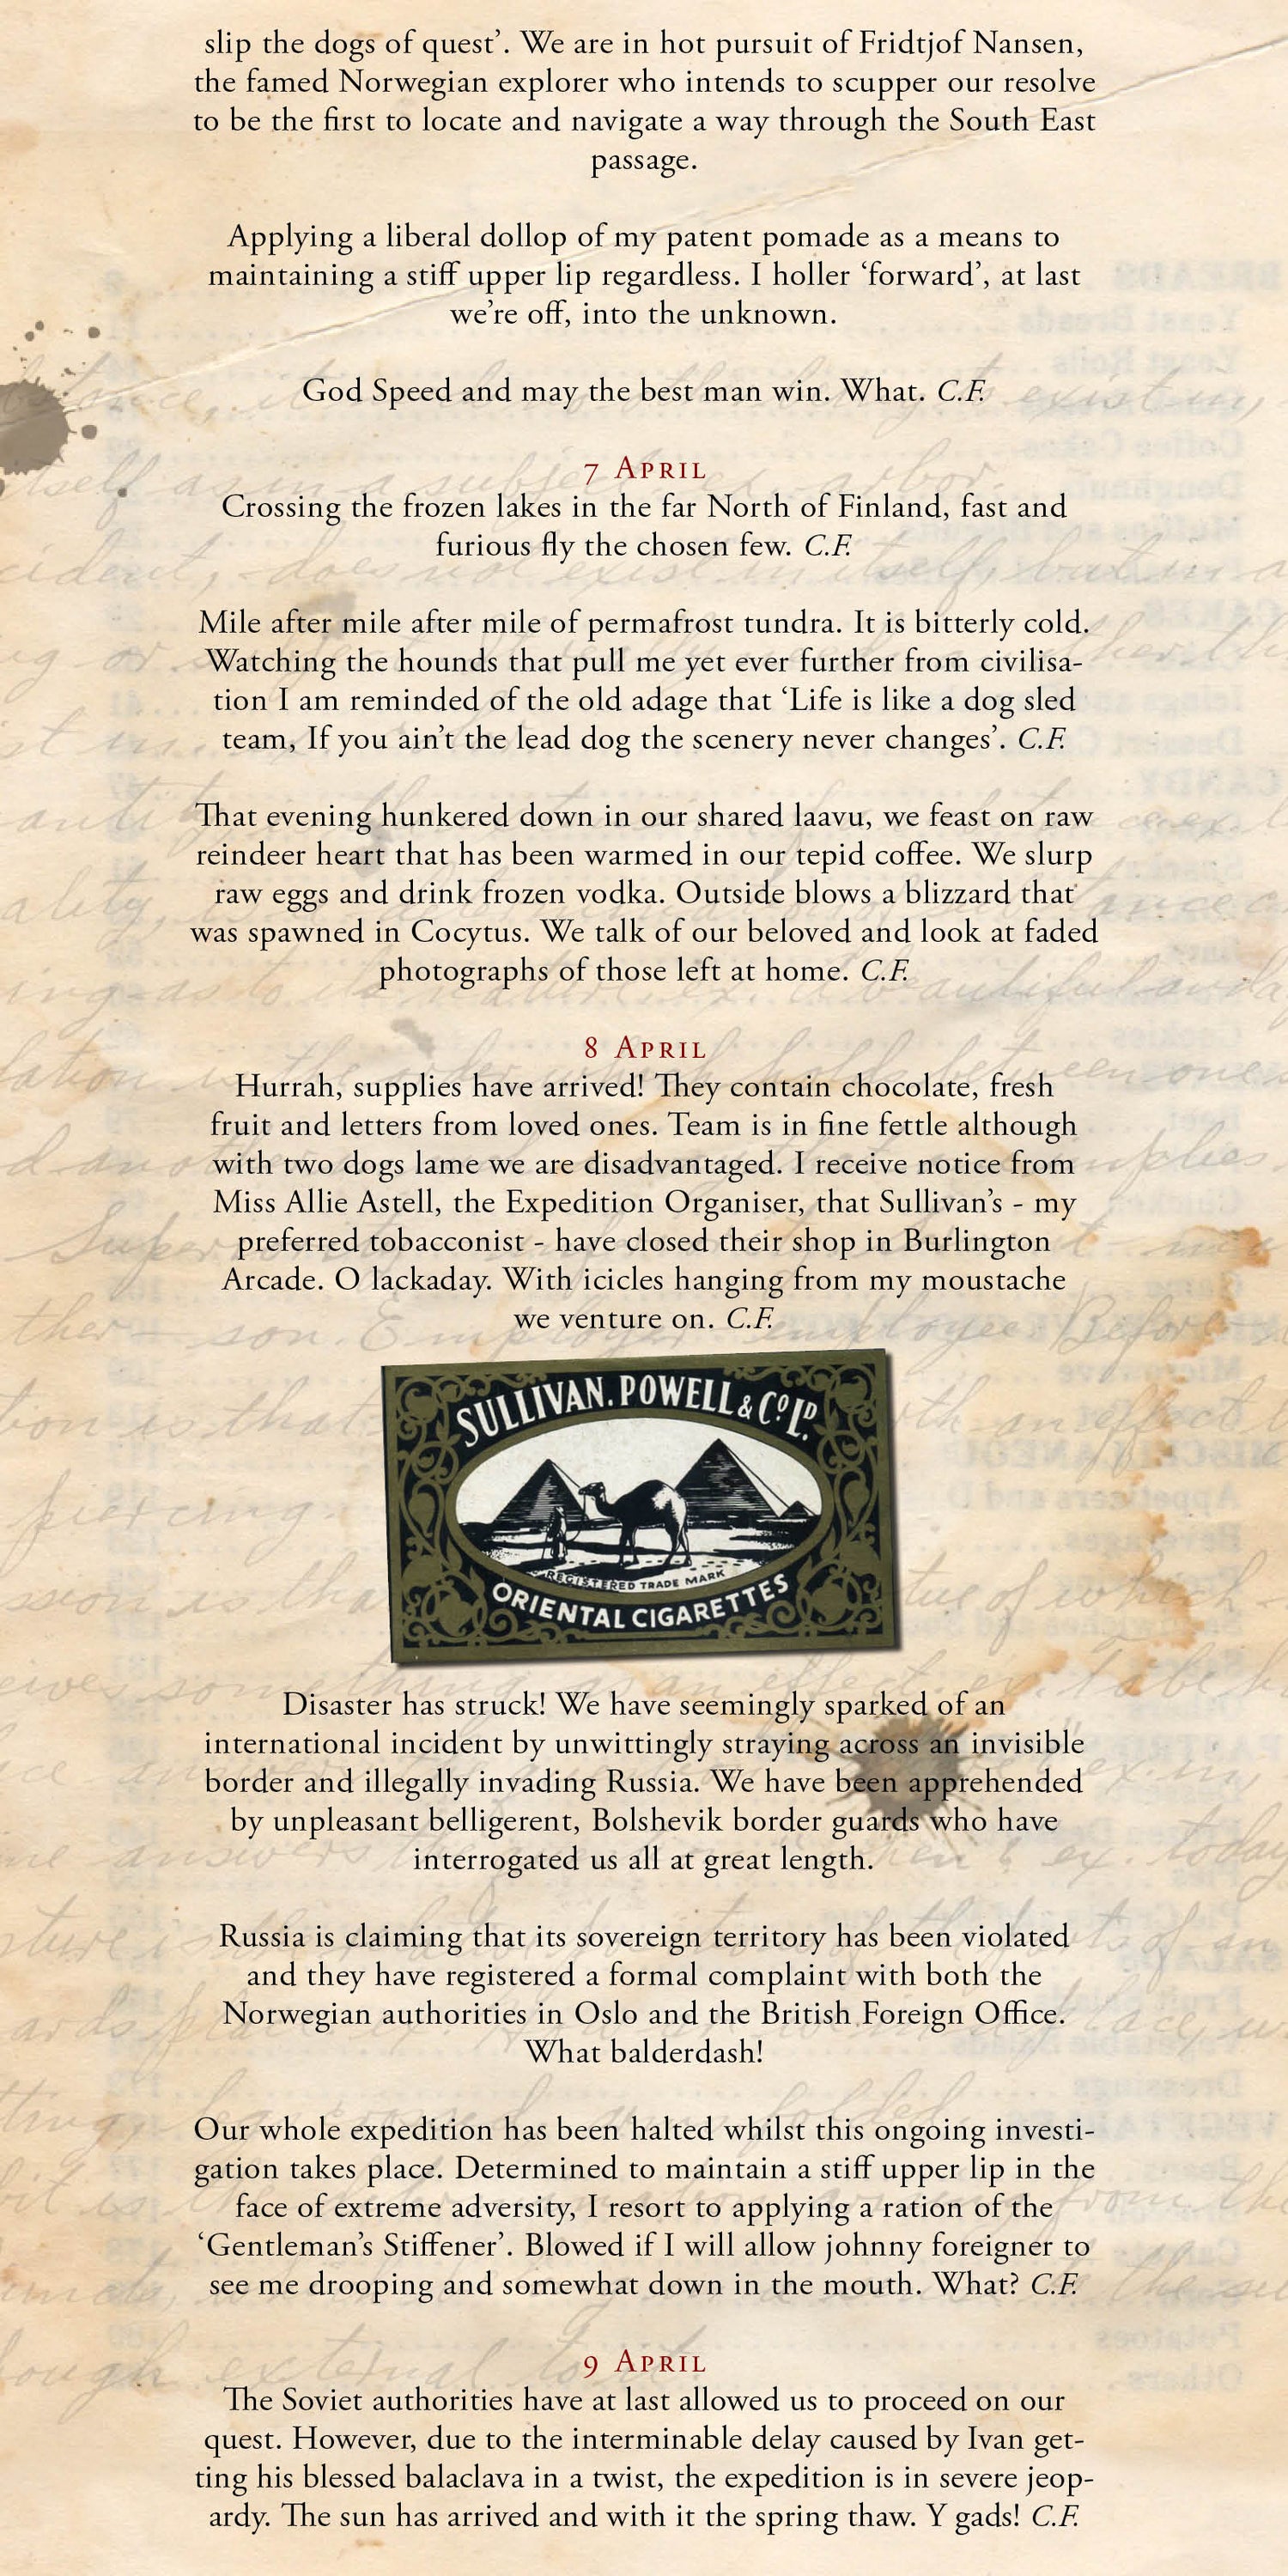 slip the dogs of quest’. We are in hot pursuit of Fridtjof Nansen,
the famed Norwegian explorer who intends to scupper our resolve
to be the first to locate and navigate a way through the South East
passage.
Applying a liberal dollop of my patent pomade as a means to
maintaining a stiff upper lip regardless. I holler ‘forward’, at last
we’re off, into the unknown.
God Speed and may the best man win. What. C.F.
7 April
Crossing the frozen lakes in the far North of Finland, fast and
furious fly the chosen few. C.F.
Mile after mile after mile of permafrost tundra. It is bitterly cold.
Watching the hounds that pull me yet ever further from civilisa-
tion I am reminded of the old adage that ‘Life is like a dog sled
team, If you ain’t the lead dog the scenery never changes’. C.F.
That evening hunkered down in our shared laavu, we feast on raw
reindeer heart that has been warmed in our tepid coffee. We slurp
raw eggs and drink frozen vodka. Outside blows a blizzard that
was spawned in Cocytus. We talk of our beloved and look at faded
photographs of those left at home. C.F.
8 April
Hurrah, supplies have arrived! They contain chocolate, fresh
fruit and letters from loved ones. Team is in fine fettle although
with two dogs lame we are disadvantaged. I receive notice from
Miss Allie Astell, the Expedition Organiser, that Sullivan’s - my
preferred tobacconist - have closed their shop in Burlington
Arcade. O lackaday. With icicles hanging from my moustache
we venture on. C.F.
SULLIVAN. POWELL & Co. LD.
REGISTERED TRADE MARK
ORIENTAL CIGARETTES
Disaster has struck! We have seemingly sparked of an
international incident by unwittingly straying across an invisible
border and illegally invading Russia. We have been apprehended
by unpleasant belligerent, Bolshevik border guards who have
interrogated us all at great length.
Russia is claiming that its sovereign territory has been violated
and they have registered a formal complaint with both the
Norwegian authorities in Oslo and the British Foreign Office.
What balderdash!
Our whole expedition has been halted whilst this ongoing investi-
gation takes place. Determined to maintain a stiff upper lip in the
face of extreme adversity, I resort to applying a ration of the
‘Gentleman’s Stiffener’. Blowed if I will allow johnny foreigner to
see me drooping and somewhat down in the mouth. What? C.F.
9 April
The Soviet authorities have at last allowed us to proceed on our
quest. However, due to the interminable delay caused by Ivan get-
ting his blessed balaclava in a twist, the expedition is in severe jeop-
ardy. The sun has arrived and with it the spring thaw. Y gads! C.F.